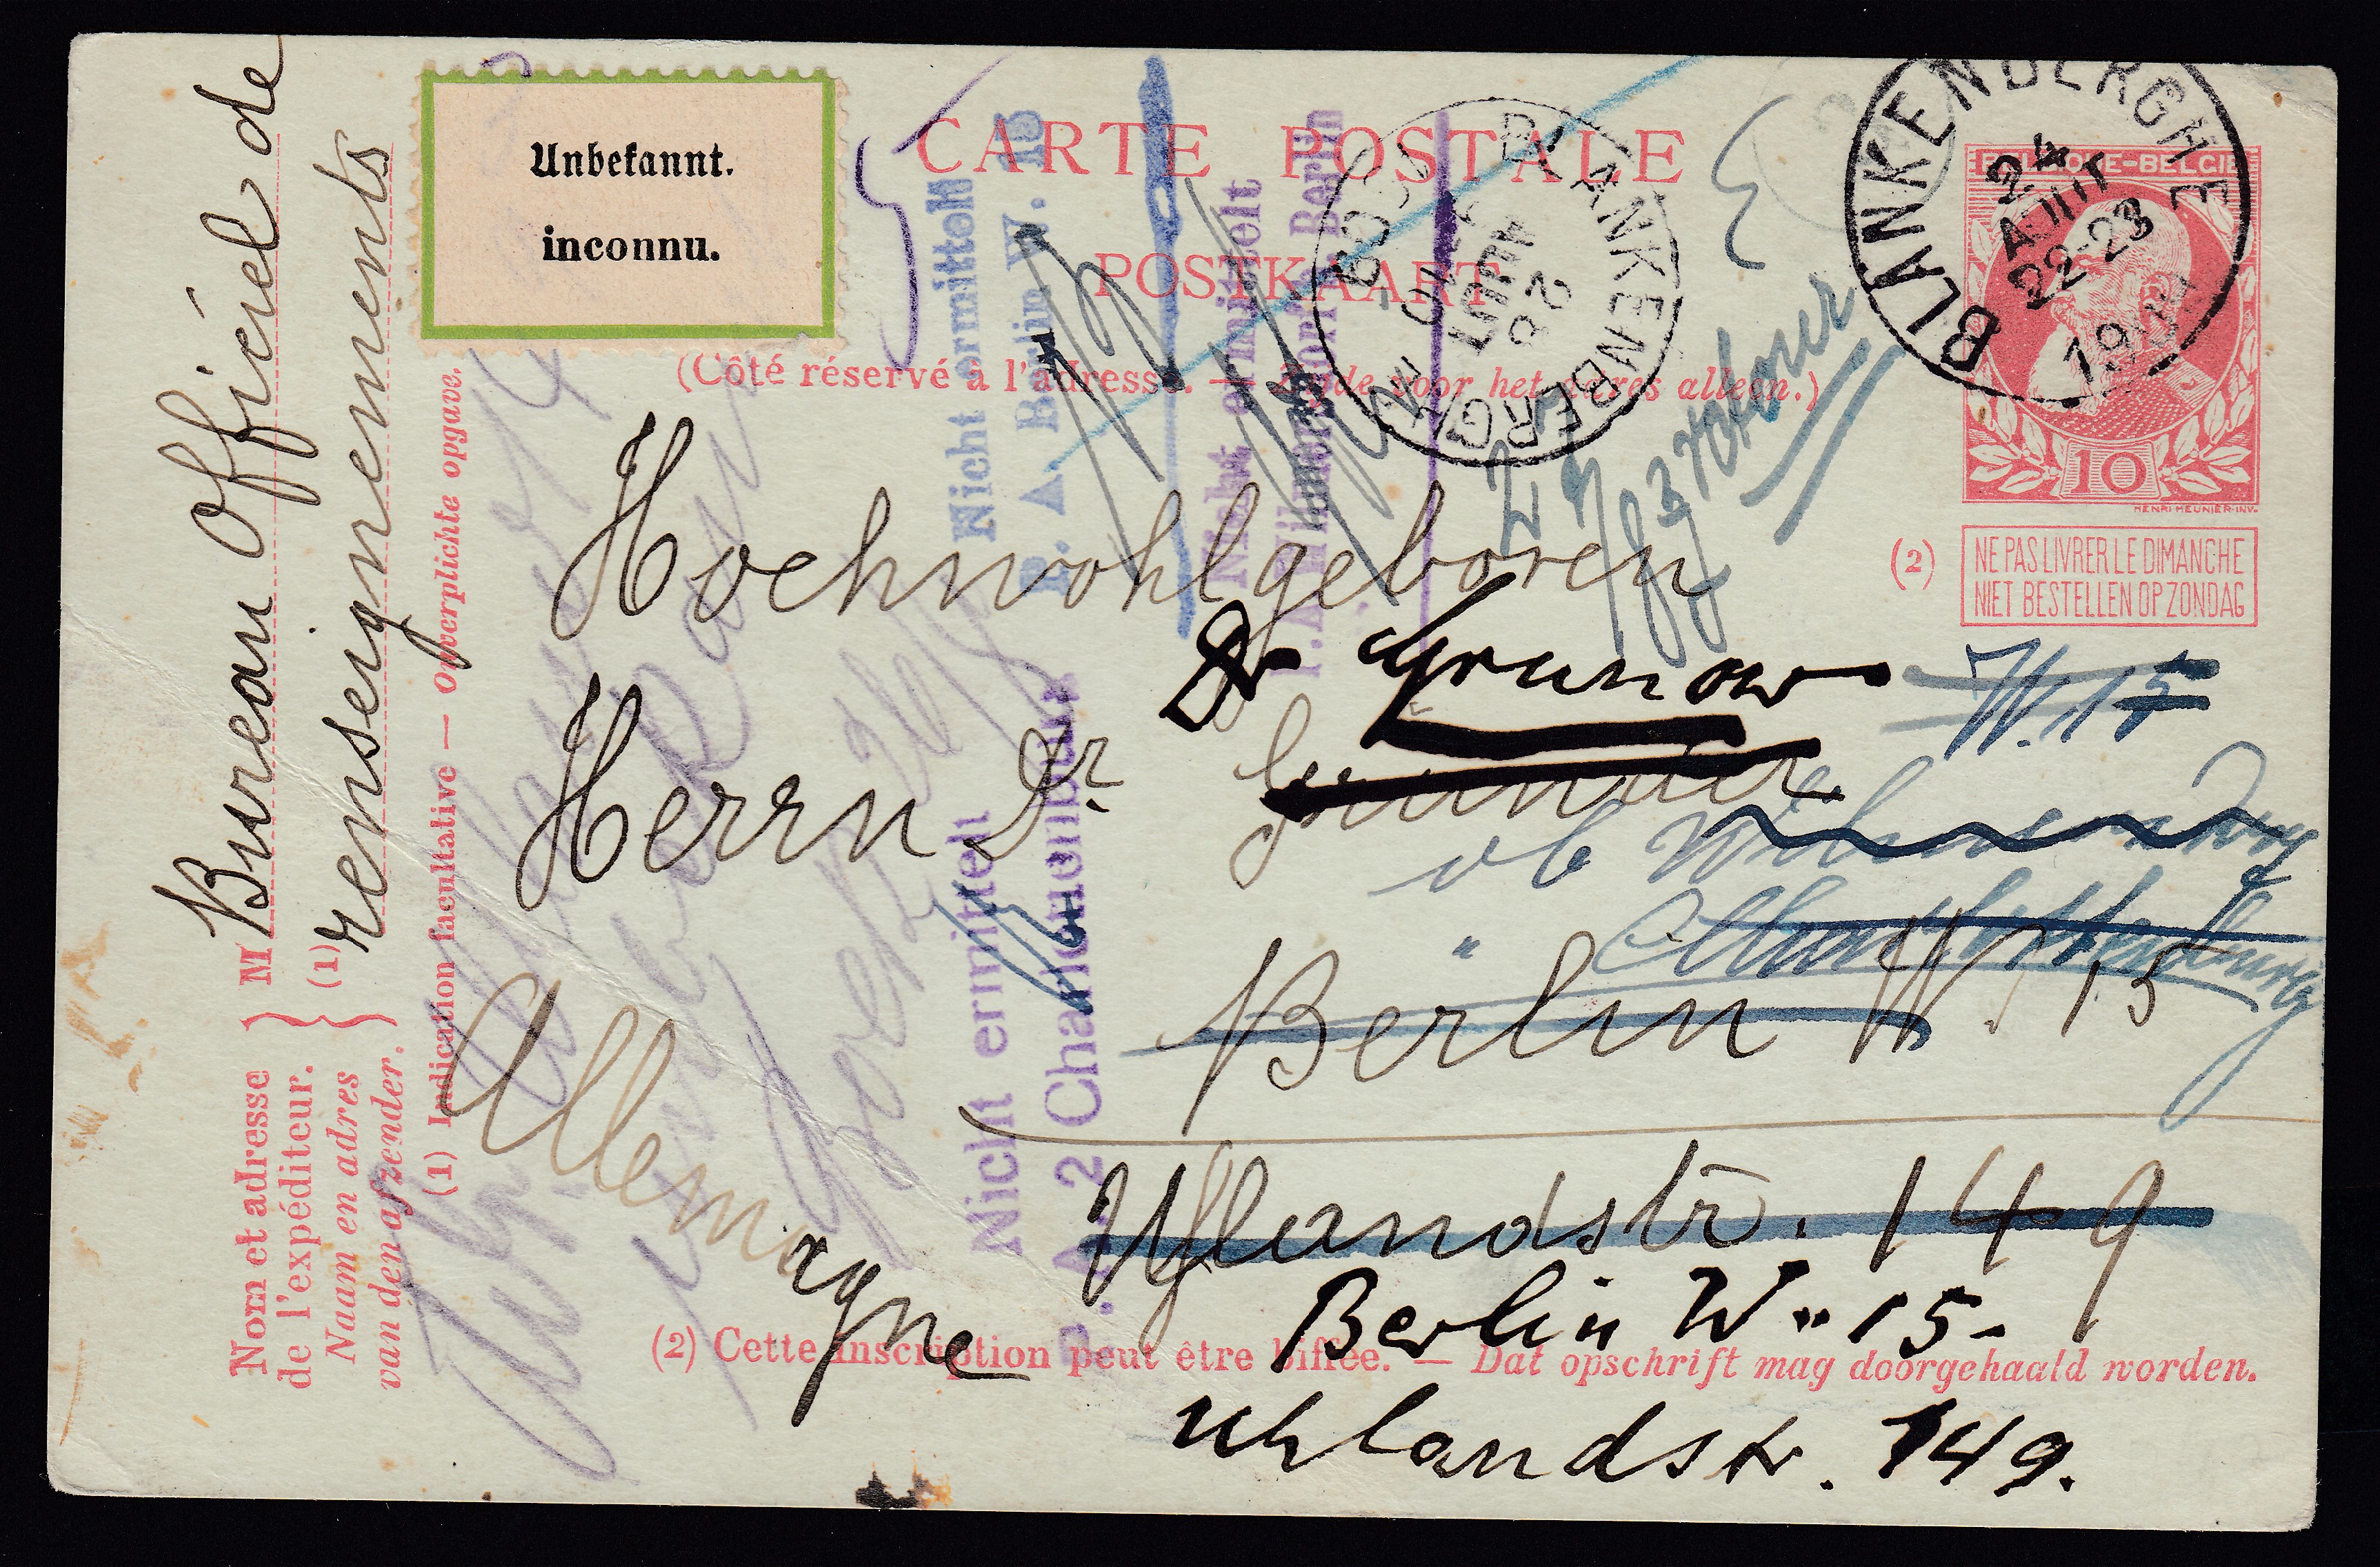 Unbekannt.
inconnu.
CARTE POSTALE
POSTKAART
(Côté réservé à l'adresse. — Zijde voor het adres alleen.)
BELGIQUE-BELGIË
10
HENRI MEUNIER·INV.
BLANKENBERGHE
24
AOUT
22-23
BLANKENBERGHE
28
AOUT
(2)
NE PAS LIVRER LE DIMANCHE
NIET BESTELLEN OP ZONDAG
Bureau Officiel de
renseignements
M
(1)
Nom et adresse
de l'expéditeur.
Naam en adres
van den afzender.
(1) Indication facultative — Onverplichte opgave.
Nicht ermittelt
P. A. Berlin W. 15
Nicht ermittelt
Nicht ermittelt
P. A. 2 Charlottenburg
retour
Hochwohlgeboren
Dr Grunow
W. 15
Herrn Dr
ob Wilmersdorf
" Charlottenburg
Berlin W. 15
Allemagne
Uhlandstr. 149
Berlin W. 15-
Uhlandstr. 149.
(2) Cette inscription peut être biffée. — Dat opschrift mag doorgehaald worden.